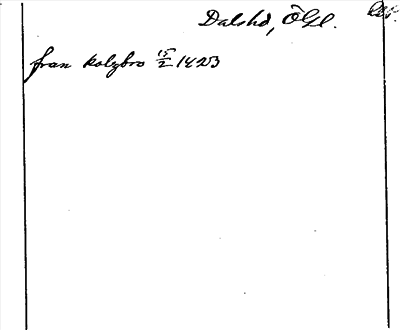 Dalshd, ÖGl.
fran kolzbro 15/2 1423